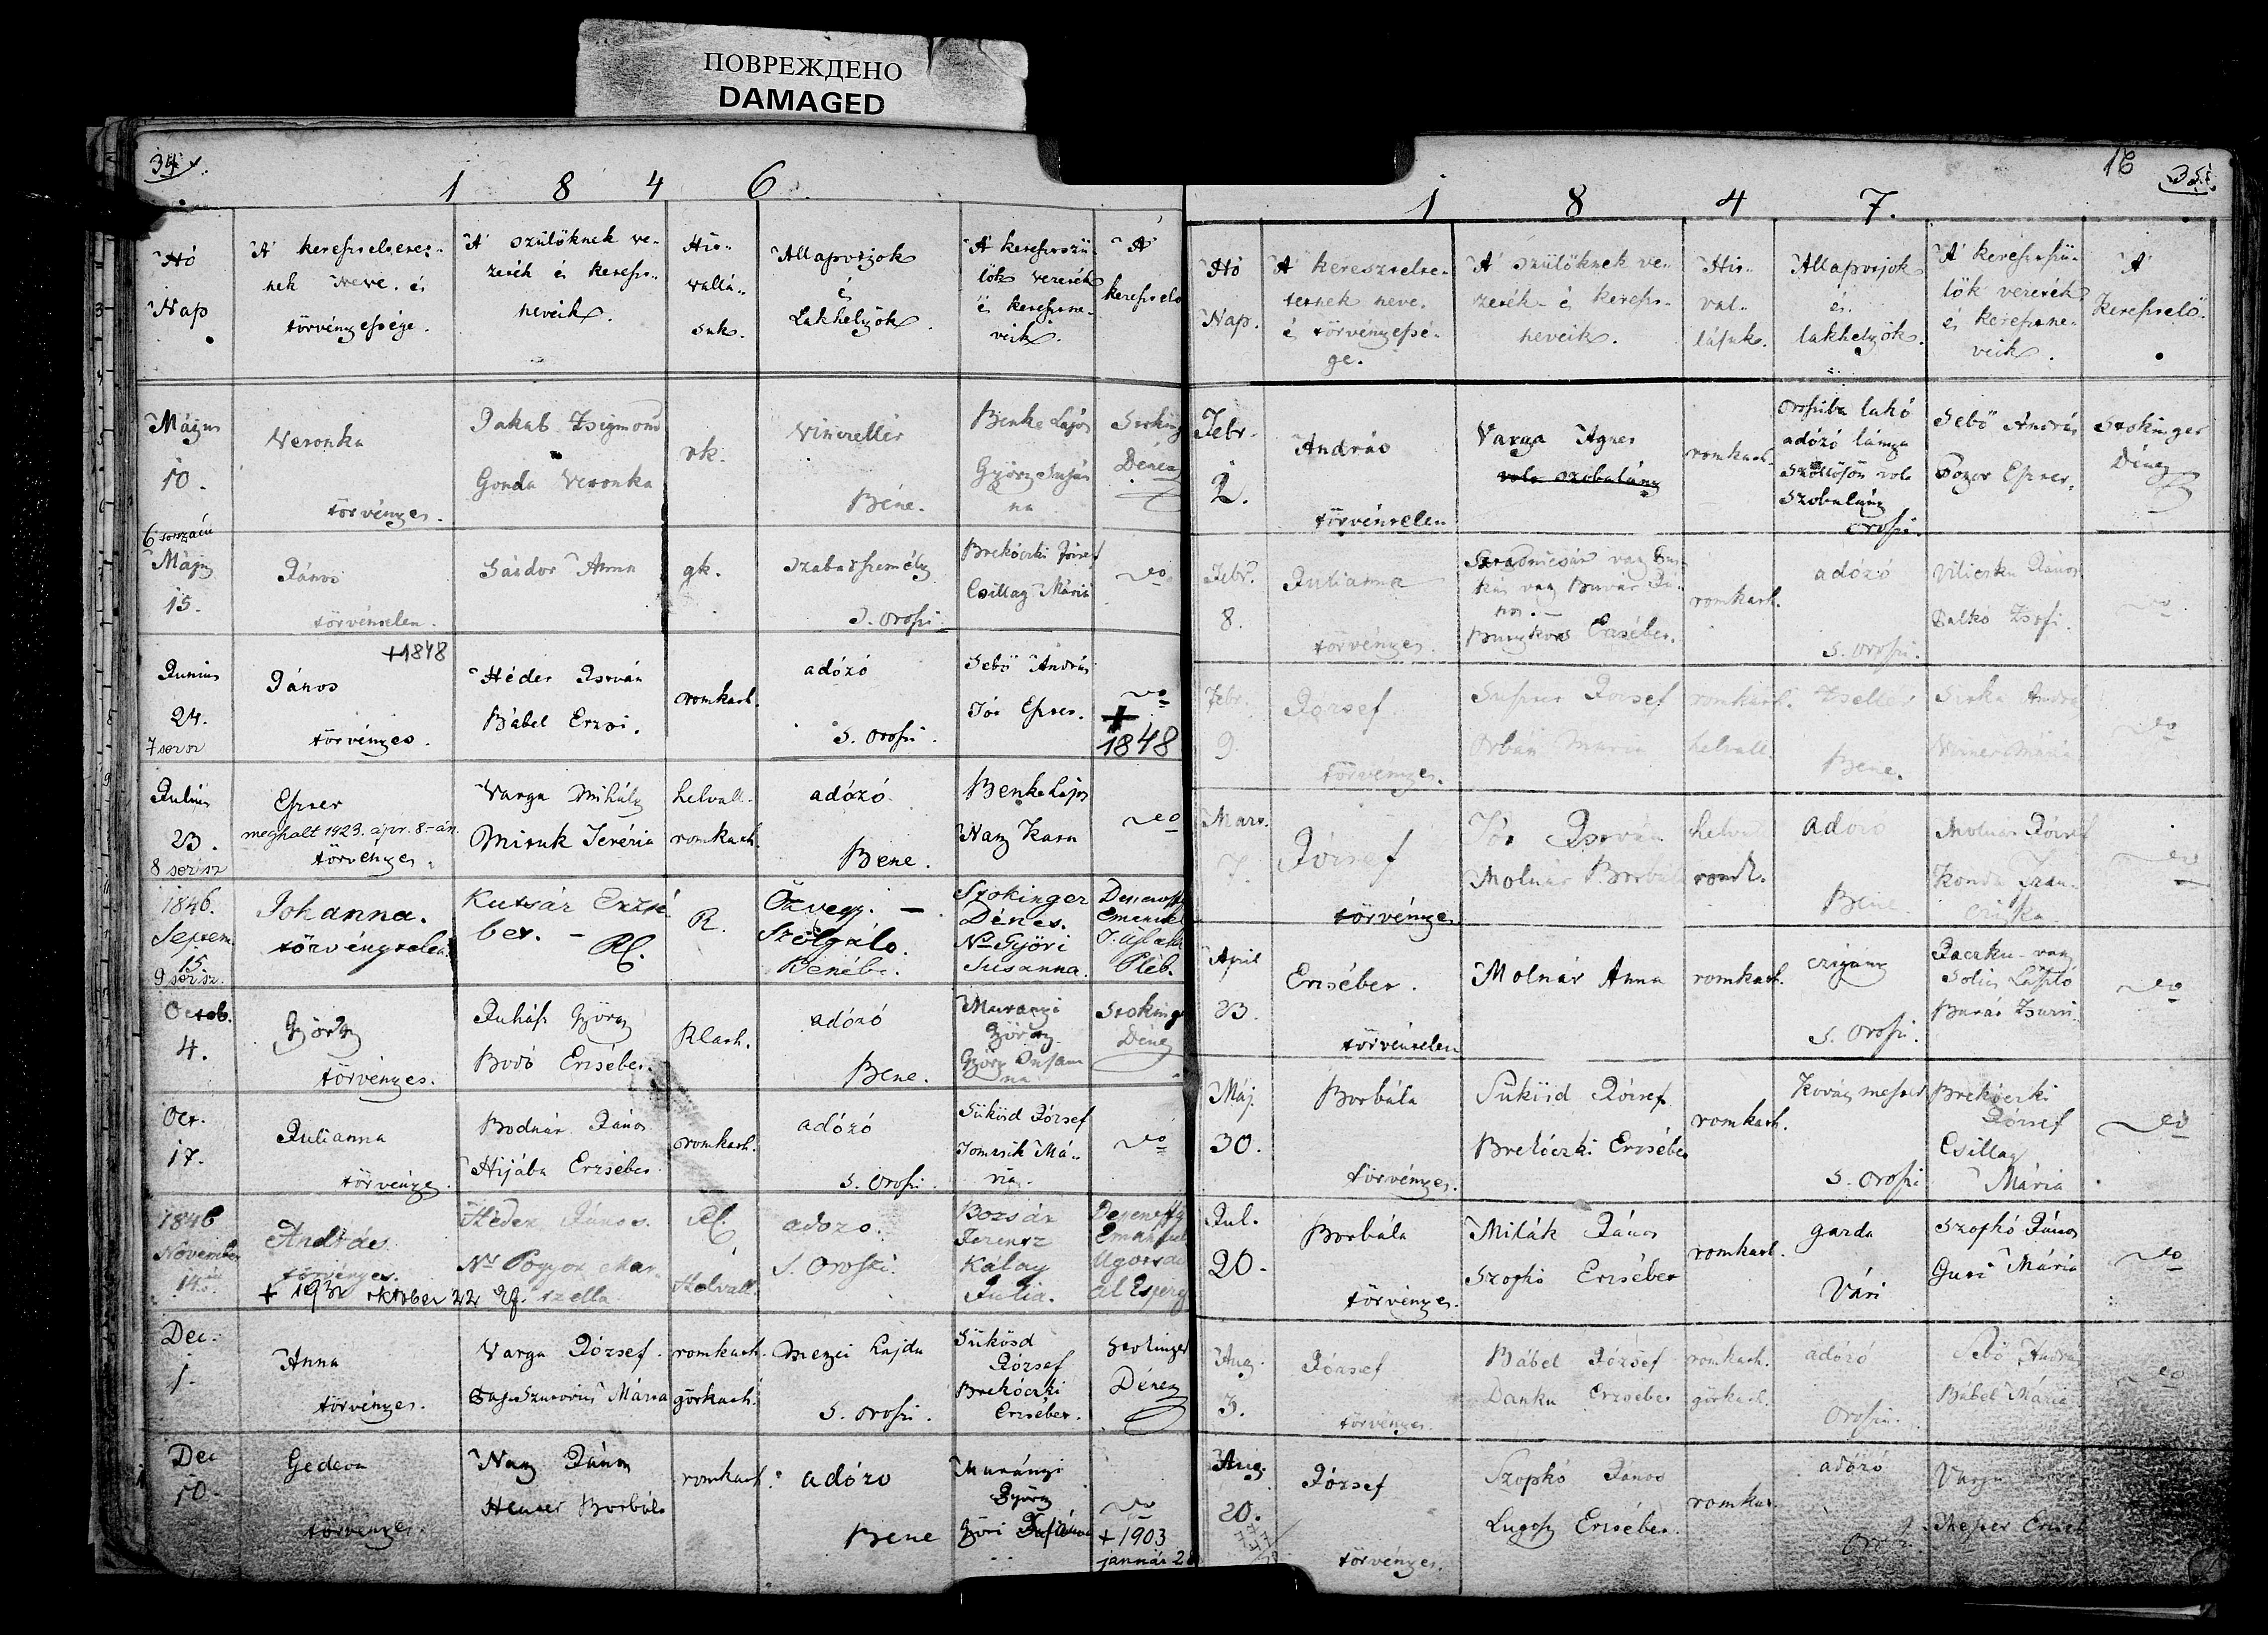 ПОВРЕЖДЕНО
DAMAGED
34
1 8 4 6
Hó
Nap
A' keresztelteт-
nek neve és
törvényessége.
A' szülöknek ve-
zeték és kereszt-
neveik.
Hit-
vallá-
suk.
Állapotjok
és
Lakhelyök.
A' keresztszü-
lök vezeték
és keresztne-
veik.
A'
keresztelő
Május
10.
Veronka
törvényes.
Jakab Zsigmond
Gonda Veronka
rk.
Vinczellér
Bene.
Benke Lajos
Györy Susán
na
Stoking
Dénes
6 sorszám
Május
15.
János
törvéntelen.
Sándor Anna
gk.
szabad személy
S. Oroszi
Brekóczki József
Csillag Mária
do
Junius
24.
7 sorsz
+1848
János
törvényes.
Héder István
Bábel Erzsi.
romkath.
adózó
S. Oroszi.
Sebő András
Tót Eszter.
do
+
1848
Julius
23.
8 sorsz
Eszter
meghalt 1923. ápr. 8-án
törvényes.
Varga Mihály
Misuk Terézia
helvall.
romkath.
adózó
Bene.
Benke Lajos
Nagy Kata
do
1846.
Septem.
15
9 sorsz.
Johanna.
törvénytelen
Kutsár Erzsé
bet. - R.C.
R.
Özvegy. -
Szolgáló.
Benébe.
Stokinger
Dénes.
Nő Győri
Susanna.
Emanuel
T. Ujlaki
Pléb.
Octob.
4.
György
törvényes.
Juhász György
Bodó Erzsébet.
R kath.
adózó
Bene.
Muranyi
György
Györy Susan
na
Stoking
Dénes
Oct.
17.
Julianna
törvényes.
Bodnár János
Hijába Erzsébet
romkath.
adózó
S. Oroszi.
Sükösd József
Tomtsik Má-
ria.
do
1846
November
14.
András
törvényes.
+ 193 oktober 22
Héder János.
Nő Pogyor Mar
szella
R.C.
Helvall.
adozo.
S. Oroszi.
Bozsár
Ferentz
Kálay
Julia.
Emanuel
Ugotsai
Al Esperes
Dec.
1.
Anna
törvényes.
Varga József.
Mária
romkath.
görkath.
mezei hajdu
S. Oroszi.
Sükösd
József
Brekóczki
Erzsébet.
Stokinger
Dénes
Dec
10.
Gedeon
törvényes.
Nagy János
Borbála
romkath.
adózo
Bene
Murányi
György
Győri Susánna
do
+ 1903
január 28
16 35
1 8 4 7.
Hó
Nap.
A' keresztelte-
tetnek neve
é törvényessé-
ge.
A' szülöknek ve-
zeték- é kereszt-
neveik.
Hit-
val-
lásuk.
Állapotjok
és
lakhelyök.
A' keresztszü-
lök vezeték
és keresztne-
veik.
A'
keresztelő.
Febr.
2.
András
törvéntelen
Varga Ágnes
volt szobaleány
romkath.
Orosziba lakó
adózó lánya
Szőllősön volt
szobaleány
Oroszi.
Sebő András
Pogor Eszter.
Stokinger
Dénes
Febr.
8.
Julianna
törvényes.
Erzsébet.
romkath.
adózó
S. Oroszi.
János
Balkó Zsófi.
do
Febr.
9.
József
törvényes.
József
Orbán Mária
romkath.
helvall.
Zsellér
Bene.
Mária
do
Mart.
7.
József
törvényes
Tót István
Molnár Borbála
helvet
romk.
adozo
Bene
Molnár József
Konda
do
April
23.
Erzsébet.
törvéntelen
Molnár Anna
romkath.
czigány
S. Oroszi.
László
do
Máj.
30.
Borbála
törvényes.
Sükösd József
Brekóczki Erzsébet
romkath.
Kovács mester
S. Oroszi
Brekóczki
József
Csillag
Mária
do
Jul.
20.
Borbála
törvényes.
Milák János
Szopkó Erzsébet
romkath.
garda
Vári
Szopkó János
Guti Mária
do
Aug.
3.
József
törvényes.
Bábel József
Danku Erzsébet
romkath.
görkath.
adózó
Oroszi.
Sebő András
Bábel Mária
do
Aug.
20.
József
törvényes.
Szopkó János
Lugosy Erzsébet.
romkat.
adózó
Varga